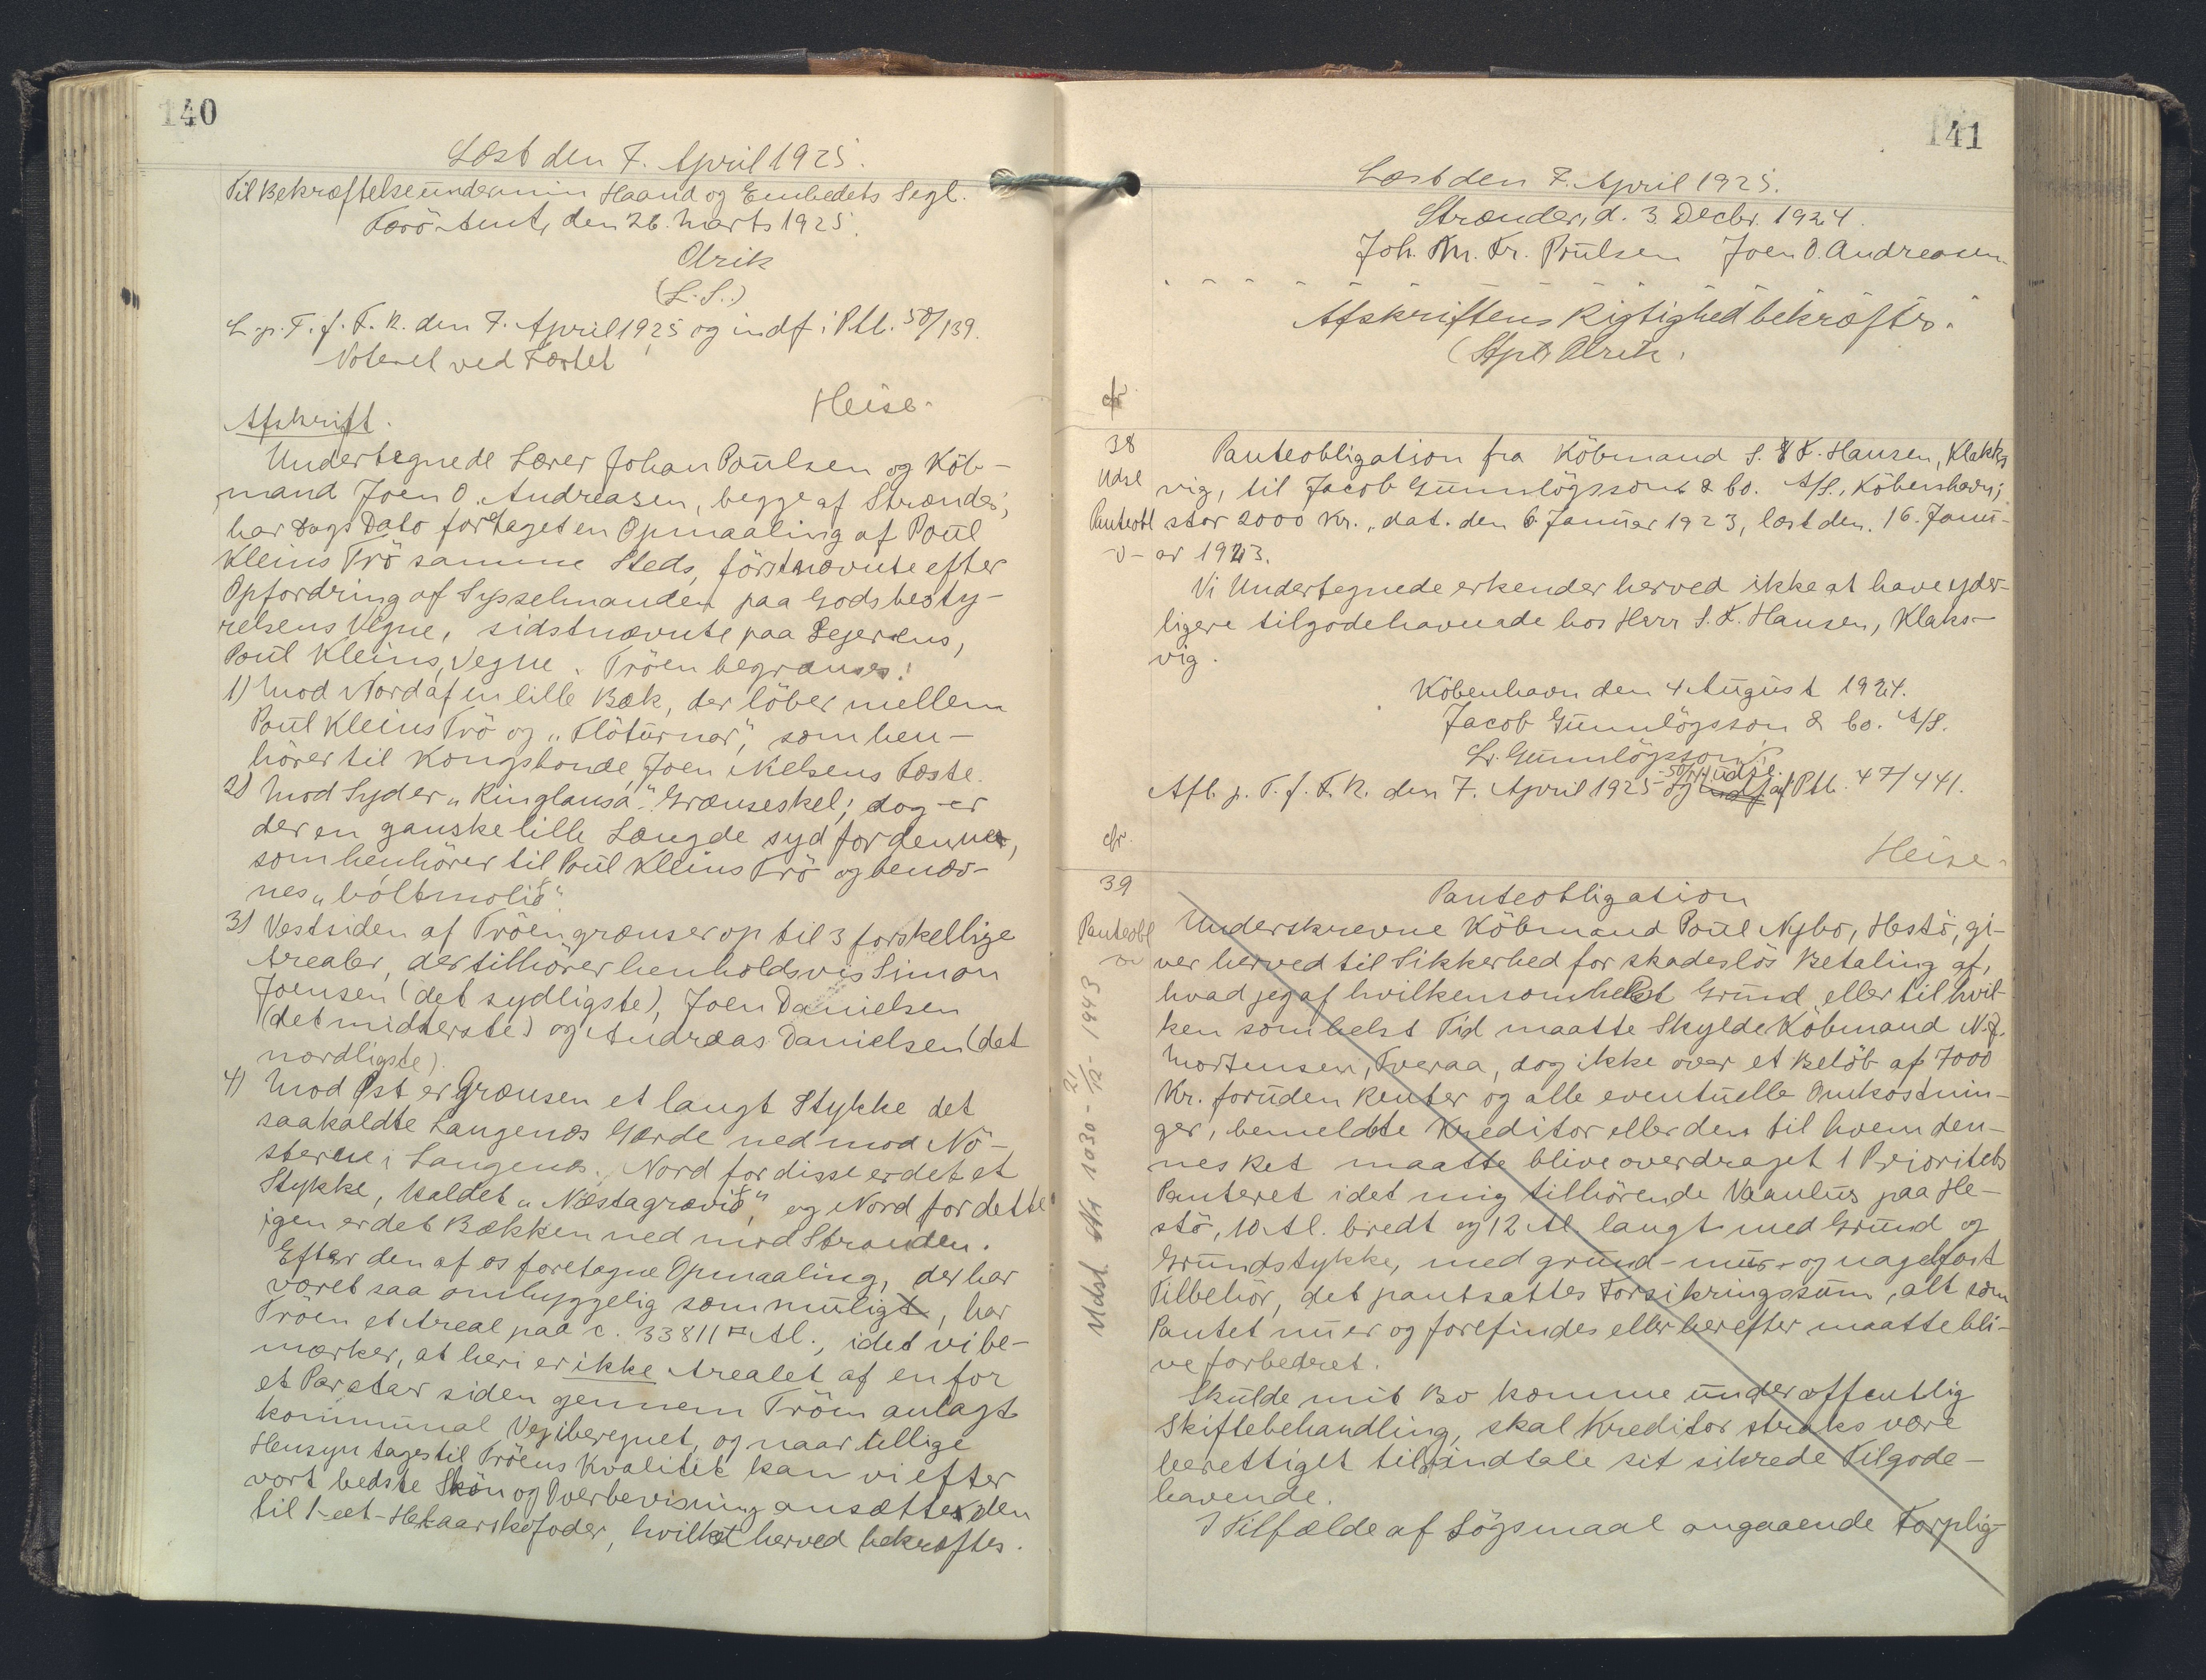 140
Læst den 7. April 1925.
Til Bekræftelse under min Haand og Embedets Segl.
Færö Amt, den 26. Marts 1925.
Olrik
(L.S.)
L. p. T. f. F. R. den 7. April 1925 og indf i Ptb. 50/139.
Noteret ved Fæstet
Heise.
Afskrift.
Undertegnede Lærer Johan Poulsen og Köb-
mand Joen O. Andreasen, begge af Strænder,
har Dags Dato foretaget en Opmaaling af Poul
Kleins Trö samme Steds, förstnævnte efter
Opfordring af Sysselmanden paa Godsbesty-
relsens Vegne, sidstnævnte paa Lejerens,
Poul Kleins, Vegne. Tröen begrænses:
1) Mod Nord af en lille Bæk, der löber mellem
Poul Kleins Trö og "Flötúrnar", som hen-
hörer til Kongsbonde Joen Nielsens Fæste.
2) Mod Syd er "Ringlansá" Grænseskel; dog er
der en ganske lille Længde syd for denne,
som henhörer til Poul Kleins Trö og benæv-
nes "hóltmolið".
3) Vestsiden af Tröen grænser op til 3 forskellige
Arealer, der tilhörer henholdsvis Simon
Joensen (det sydligste), Joen Danielsen
(det midterste) og Andreas Danielsen (det
nordligste).
4) Mod Øst er Grænsen et langt Stykke det
saakaldte Langenæs Gærde ned mod Nö-
sterne i Langenæs. Nord for disse er det et
Stykke, kaldet "Næstagravið", og Nord for dette
igen er det Bækken ned mod Stranden.
Efter den af os foretagne Opmaaling, der har
været saa omhyggelig som muligt, har
Tröen et Areal paa c. 33811 □ Al., idet vi be-
mærker, at heri er ikke Arealet af en for
et Par Aar siden gennem Tröen anlagt
kommunal Vej iberegnet, og naar tillige
Hensyn tages til Tröens Kvalitet kan vi efter
vort bedste Skön og Overbevisning ansætte den
til 1 - eet - Hekaarskofoder, hvilket herved bekræftes.
141
Læst den 7. April 1925.
Strænder, d. 3. Decbr. 1924.
Joh. Kr. Poulsen Joen O. Andreasen
Afskriftens Rigtighed bekræftes.
(Stpl) Olrik.
cfr.
38
Udsl
Panteobl
Panteobligation fra Köbmand S. F. Hansen, Klaks
vig, til Jacob Gunnlögsson & Co. A/S., Köbenhavn,
stor 2000 Kr., dat. den 6. Januar 1923, læst den. 16. Janu-
ar 1923.
Vi Undertegnede erkender herved ikke at have yder-
ligere tilgodehavende hos Herr S. F. Hansen, Klaks-
vig.
Köbenhavn den 4 August 1924.
Jacob Gunnlögsson & Co. A/S.
Gunnlögsson
Afl. p. T. f. F. R. den 7. April 1925 og udsl. af Ptb. 47/441.
cfr.
Heise.
39
Panteobl
Udsl Akt 1030 - 21/12 - 1943
Panteobligation
Underskrevne Köbmand Poul Nybo, Hestö, gi-
ver herved til Sikkerhed for skadeslös Betaling af,
hvad jeg af hvilkensomhelst Grund eller til hvil-
ken somhelst Tid maatte Skylde Köbmand N.J.
Mortensen, Tveraa, dog ikke over et Belöb af 7000
Kr. foruden Renter og alle eventuelle Omkostnin-
ger, bemeldte Kreditor eller den til hvem den-
nes Ret maatte blive overdraget 1 Prioritets
Panteret i det mig tilhörende Vaanhus paa He-
stö, 10 Al. bredt og 12 Al. langt med Grund og
Grundstykke, med grund-mur- og nagelfast
Tilbehör, det pantsattes Forsikringssum, alt som
Pantet nu er og forefindes eller herefter maatte bli-
ve forbedret.
Skulde mit Bo komme under offentlig
Skiftebehandling, skal Kreditor straks være
berettiget til at indtale sit sikrede Tilgode-
havende.
I Tilfælde af Sögsmaal angaaende Forplig-